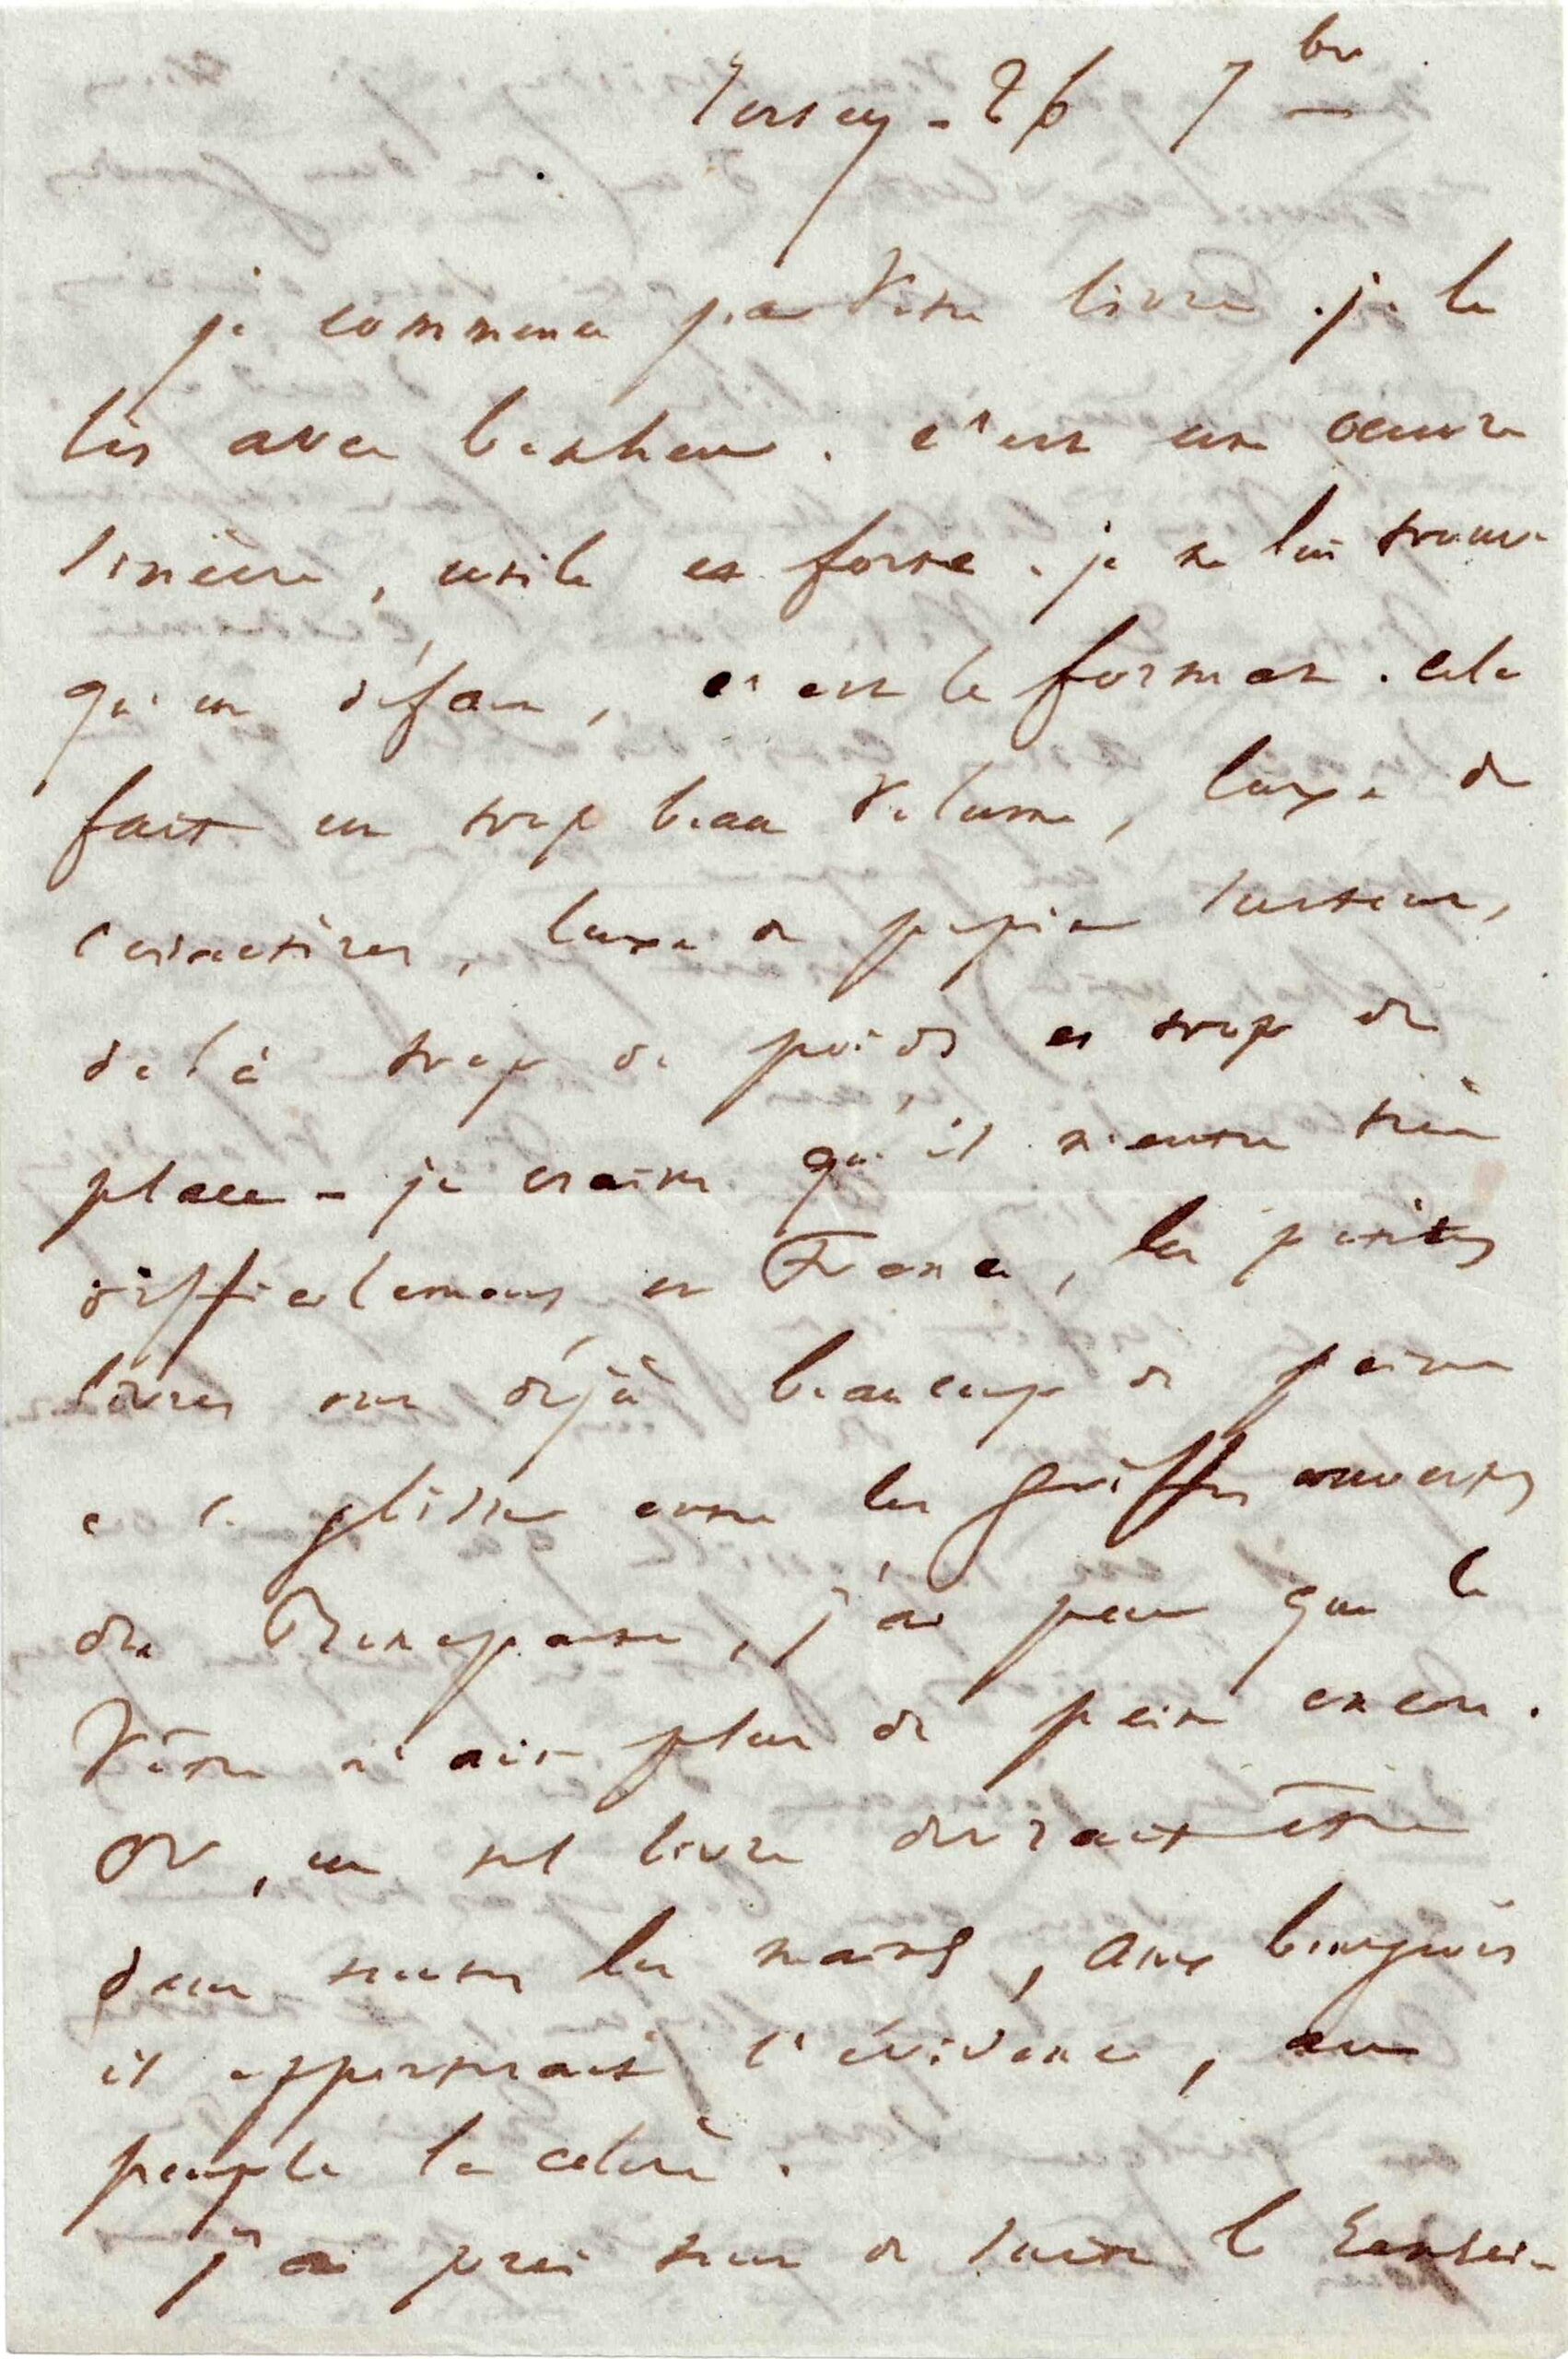 Jersey - 26 7bre
je commence par votre livre. je le
lis avec bonheur. c'est une œuvre
sincère, utile et forte. je ne lui trouve
qu'un défaut, c'est le format. cela
fait un trop beau volume, luxe de
caractères, luxe de papier surtout,
de là trop de poids et trop de
place - je crains qu'il n'entre très
difficilement en France, les petits
livres ont déjà beaucoup de peine
à se glisser entre les griffes ouvertes
du Bonaparte, j'ai peur que le
vôtre n'ait plus de peine encore.
Or, un tel livre devrait être
dans toutes les mains, aux bourgeois
il apporterait l'évidence, au
peuple la colère.
j'ai pris tout de suite le